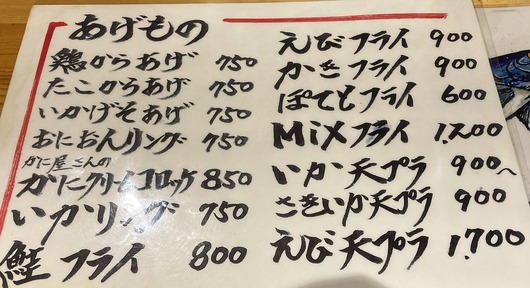 あげもの
鶏からあげ 750
たこからあげ 750
いかげそあげ 750
おにおんリング 750
かに屋さんの
かにクリームコロッケ 850
いかリング 750
鮭フライ 800
えびフライ 900
かきフライ 900
ぽてとフライ 600
MiXフライ 1,200
いか天プラ 900〜
さきいか天プラ 900
えび天プラ 1,700